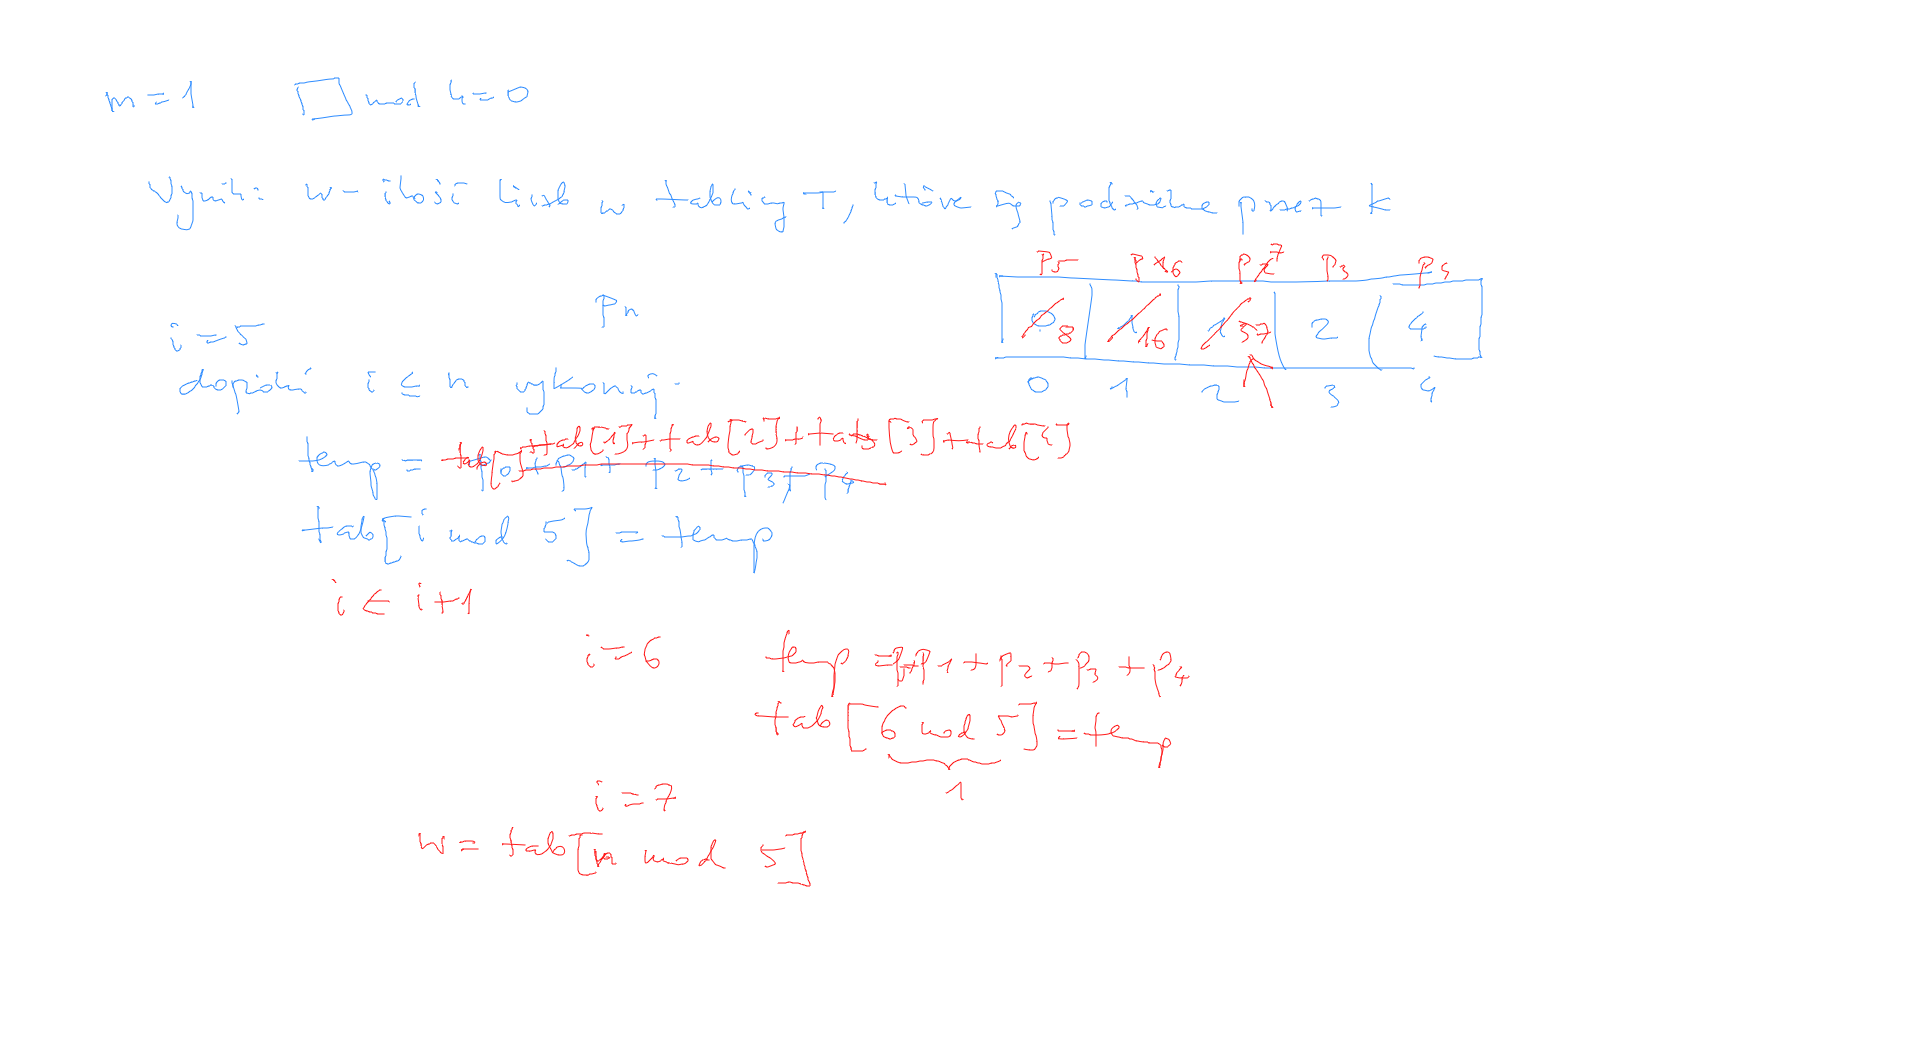 m = 1 □ mod k = 0
Wynik: w - ilość liczb w tablicy T, które są podzielne przez k
p5 p1 6 p2 7 p3 p4
0 8 1 16 1 37 2 4
0 1 2 3 4
pn
i = 5
dopóki i ≤ n wykonuj.
temp = tab[0]+tab[1]+tab[2]+tab[3]+tab[4]
p0+p1+p2+p3+p4
tab[i mod 5] = temp
i ← i+1
i = 6 temp = p1+p2+p3+p4
tab[6 mod 5] = temp
1
i = 7
w = tab[n mod 5]